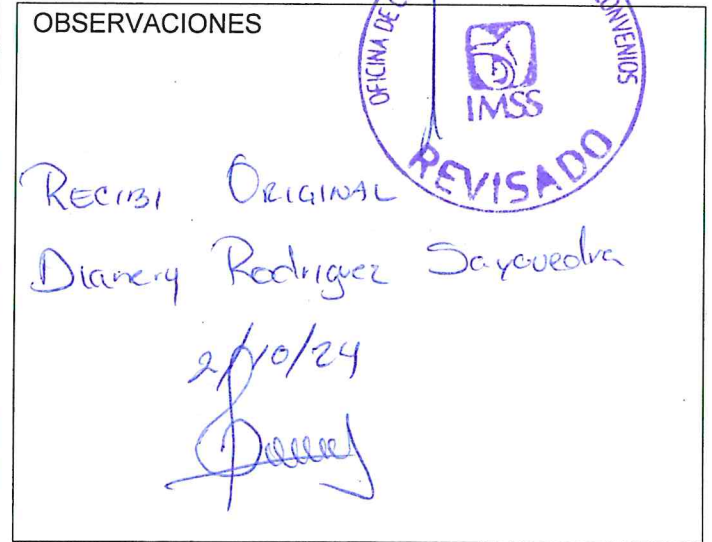 OBSERVACIONES
OFICINA DE C
CONVENIOS
IMSS
REVISADO
RECIBI ORIGINAL
Dianery Rodriguez Sayavedra
2/10/24